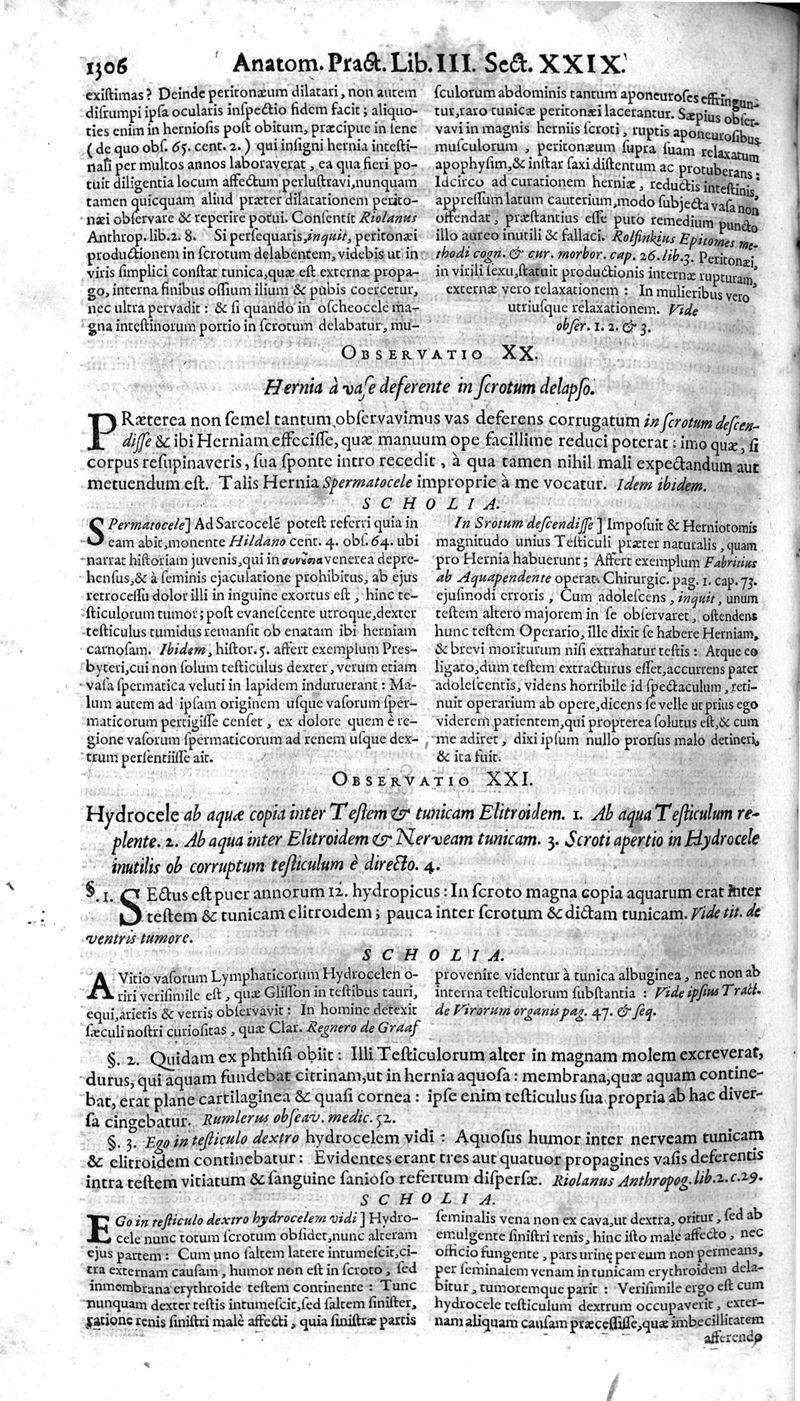 1306 Anatom. Pract. Lib. III. Sect. XXIX.
existimas? Deinde peritonæum dilatari, non autem
disrumpi ipsa ocularis inspectio fidem facit; aliquo-
ties enim in herniosis post obitum, præcipue in sene
(de quo obs. 65. cent. 2.) qui insigni hernia intesti-
nali per multos annos laboraverat, ea qua fieri po-
tuit diligentia locum affectum perlustravi, nunquam
tamen quicquam aliud præter dilatationem perito-
næi observare & reperire potui. Consentit Riolanus
Anthrop. lib. 2. 8. Si persequaris, inquit, peritonæi
productionem in scrotum delabentem, videbis ut in
viris simplici constat tunica, quæ est externæ propa-
go, interna finibus ossium ilium & pubis coercetur,
nec ultra pervadit: & si quando in oscheocele ma-
gna intestinorum portio in scrotum delabatur, mu-
sculorum abdominis tantum aponeuroses effringun-
tur, raro tunicæ peritonæi lacerantur. Sæpius obser-
vavi in magnis herniis scroti, ruptis aponeurosibus
musculorum, peritonæum supra suam relaxatum
apophysim, & instar saxi distentum ac protuberans:
Idcirco ad curationem herniæ, reductis intestinis,
appressum latum cauterium, modo subjecta vasa non
offendat, præstantius esse puto remedium puncto
illo aureo inutili & fallaci. Rolfinkius Epitomes me-
thodi cogn. & cur. morbor. cap. 26. lib. 3. Peritonæi,
in virili sexu, statuit productionis internæ rupturam,
externæ vero relaxationem: In mulieribus vero
utriusque relaxationem. Vide
obser. 1. 2. & 3.
OBSERVATIO XX.
Hernia à vase deferente in scrotum delapso.
PRæterea non semel tantum observavimus vas deferens corrugatum in scrotum descen-
disse & ibi Herniam effecisse, quæ manuum ope facillime reduci poterat: imo quæ, si
corpus resupinaveris, sua sponte intro recedit, à qua tamen nihil mali expectandum aut
metuendum est. Talis Hernia Spermatocele improprie à me vocatur. Idem ibidem.
SCHOLIA.
SPermatocele] Ad Sarcocelē potest referri quia in
eam abit, monente Hildano cent. 4. obs. 64. ubi
narrat historiam juvenis, qui in συνεσια venerea depre-
hensus, & à seminis ejaculatione prohibitus, ab ejus
retrocessu dolor illi in inguine exortus est, hinc te-
sticulorum tumor; post evanescente utroque, dexter
testiculus tumidus remansit ob enatam ibi herniam
carnosam. Ibidem, histor. 5. affert exemplum Pres-
byteri, cui non solum testiculus dexter, verum etiam
vasa spermatica veluti in lapidem induruerant: Ma-
lum autem ad ipsam originem usque vasorum sper-
maticorum pertigisse censet, ex dolore quem è re-
gione vasorum spermaticorum ad renem usque dex-
trum persentiisse ait.
In Srotum descendisse] Imposuit & Herniotomis
magnitudo unius Testiculi præter naturalis, quam
pro Hernia habuerunt; Affert exemplum Fabritius
ab Aquapendente operat. Chirurgic. pag. 1. cap. 73.
ejusmodi erroris, Cum adolescens, inquit, unum
testem altero majorem in se observaret, ostendens
hunc testem Operario, ille dixit se habere Herniam,
& brevi moriturum nisi extrahatur testis: Atque eo
ligato, dum testem extracturus esset, accurrens pater
adolescentis, videns horribile id spectaculum, reti-
nuit operarium ab opere, dicens se velle ut prius ego
viderem patientem, qui propterea solutus est, & cum
me adiret, dixi ipsum nullo prorsus malo detineri,
& ita fuit.
OBSERVATIO XXI.
Hydrocele ab aquæ copia inter Testem & tunicam Elitroidem. 1. Ab aqua Testiculum re-
plente. 2. Ab aqua inter Elitroidem & Nerveam tunicam. 3. Scroti apertio in Hydrocele
inutilis ob corruptum testiculum è directo. 4.
§. 1. SEctus est puer annorum 12. hydropicus: In scroto magna copia aquarum erat inter
testem & tunicam elitroidem; pauca inter scrotum & dictam tunicam. Vide tit. de
ventris tumore.
SCHOLIA.
A Vitio vasorum Lymphaticorum Hydrocelen o-
riri verisimile est, quæ Glisson in testibus tauri,
equi, arietis & verris observavit: In homine detexit
sæculi nostri curiositas, quæ Clar. Regnero de Graaf
provenire videntur à tunica albuginea, nec non ab
interna testiculorum substantia: Vide ipsius Tract.
de Virorum organis pag. 47. & seq.
§. 2. Quidam ex phthisi obiit: Illi Testiculorum alter in magnam molem excreverat,
durus, qui aquam fundebat citrinam, ut in hernia aquosa: membrana, quæ aquam contine-
bat, erat plane cartilaginea & quasi cornea: ipse enim testiculus sua propria ab hac diver-
sa cingebatur. Rumlerus obseav. medic. 52.
§. 3. Ego in testiculo dextro hydrocelem vidi: Aquosus humor inter nerveam tunicam
& elitroidem continebatur: Evidentes erant tres aut quatuor propagines vasis deferentis
intra testem vitiatum & sanguine sanioso refertum dispersæ. Riolanus Anthropog. lib. 2. c. 29.
SCHOLIA.
EGo in testiculo dextro hydrocelem vidi] Hydro-
cele nunc totum scrotum obsidet, nunc alteram
ejus partem: Cum uno saltem latere intumescit, ci-
tra externam causam, humor non est in scroto, sed
in membrana erythroide testem continente: Tunc
nunquam dexter testis intumescit, sed saltem sinister,
ratione renis sinistri malè affecti, quia sinistræ partis
seminalis vena non ex cava, ut dextra, oritur, sed ab
emulgente sinistri renis, hinc isto male affecto, nec
officio fungente, pars urinę per eum non permeans,
per seminalem venam in tunicam erythroidem dela-
bitur, tumoremque parit: Verisimile ergo est cum
hydrocele testiculum dextrum occupaverit, exter-
nam aliquam causam præcessisse, quæ imbecillitatem
afferendo